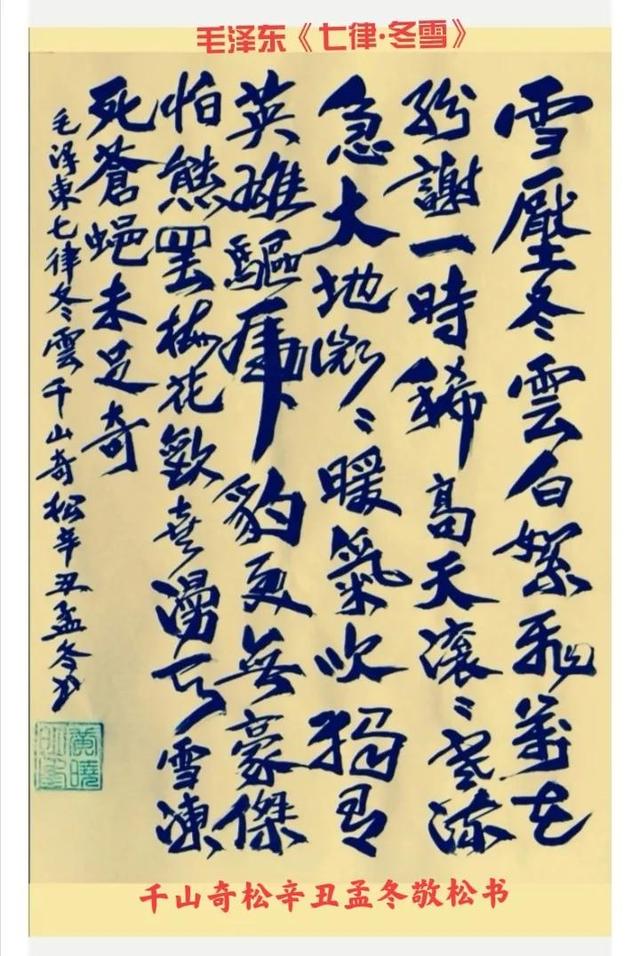 毛泽东《七律·冬雪》
雪壓冬雲白絮飛萬花
紛謝一時稀高天滾〻寒流
急大地微〻暖氣吹獨有
英雄驅虎豹更無豪傑
怕熊罢梅花歡喜漫天雪凍
死蒼蠅未足奇
毛泽東七律冬雲千山奇松辛丑孟冬书
千山奇松辛丑孟冬敬松书